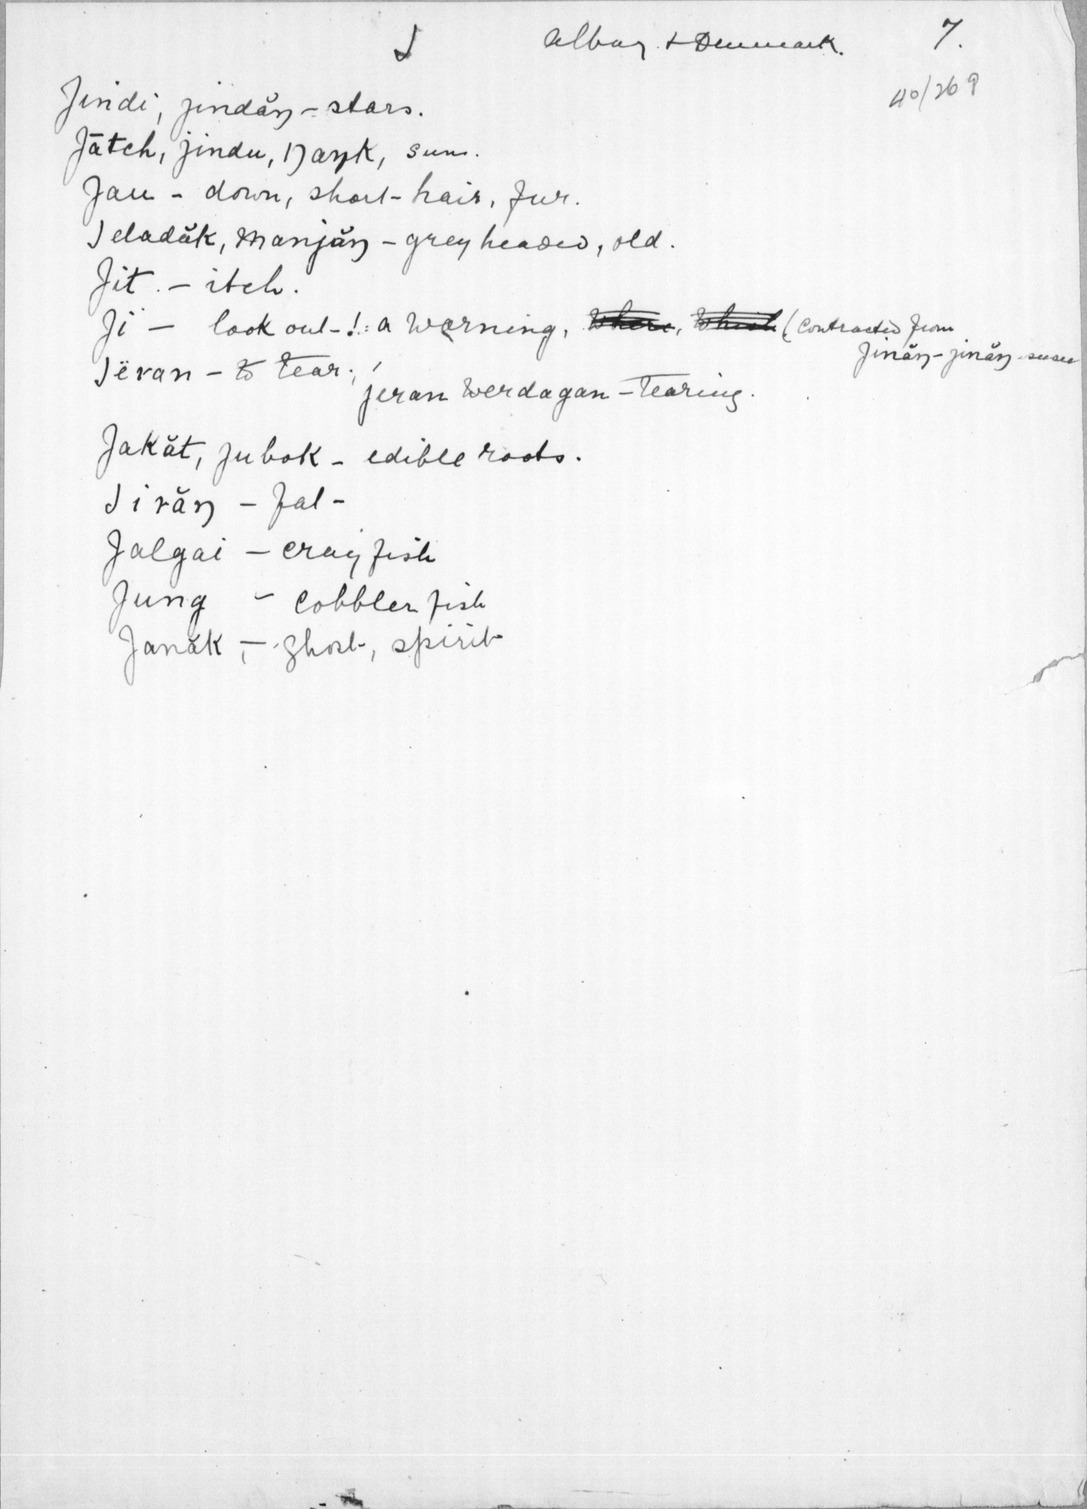 J Albany & Denmark. 7.
40/269
Jindi, jindăŋ - stars.
Jātch, jindu, ŋaŋk, sun.
Jau - down, short hair, fur.
Jeladăk, manjăŋ - grey headed, old.
Jit - itch.
Jï - look out! : a warning, where, which (contracted from
Jinăŋ - jinăŋ
Jëran - to tear; jeran werdagan - tearing.
Jakăt, jubok - edible roots.
Jirăŋ - fat
Jalgai - crayfish
Jung - cobbler fish
Janăk, - ghost, spirit